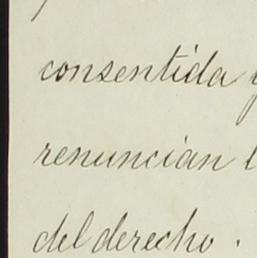 consentida y
renuncian l
del derecho.